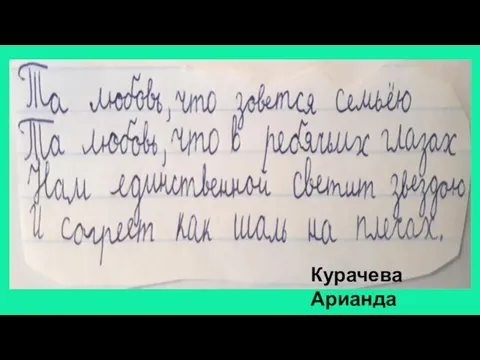 Та любовь, что зовется семьёю
Та любовь, что в ребячьих глазах
Нам единственной светит звездою
И согреет как шаль на плечах.
Курачева
Арианда